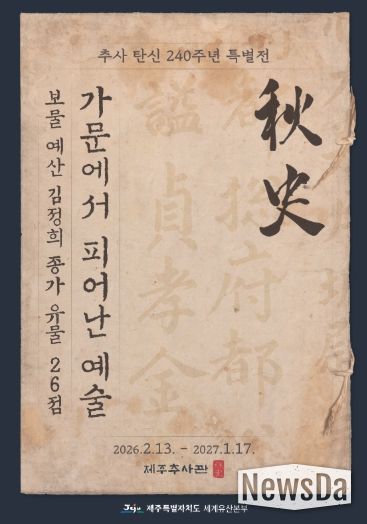 추사 탄신 240주년 특별전
秋史
가문에서 피어난 예술
보물 예산 김정희 종가 유물 26점
2026.2.13. - 2027.1.17.
제주추사관
Jeju 제주특별자치도 세계유산본부
NewsDa